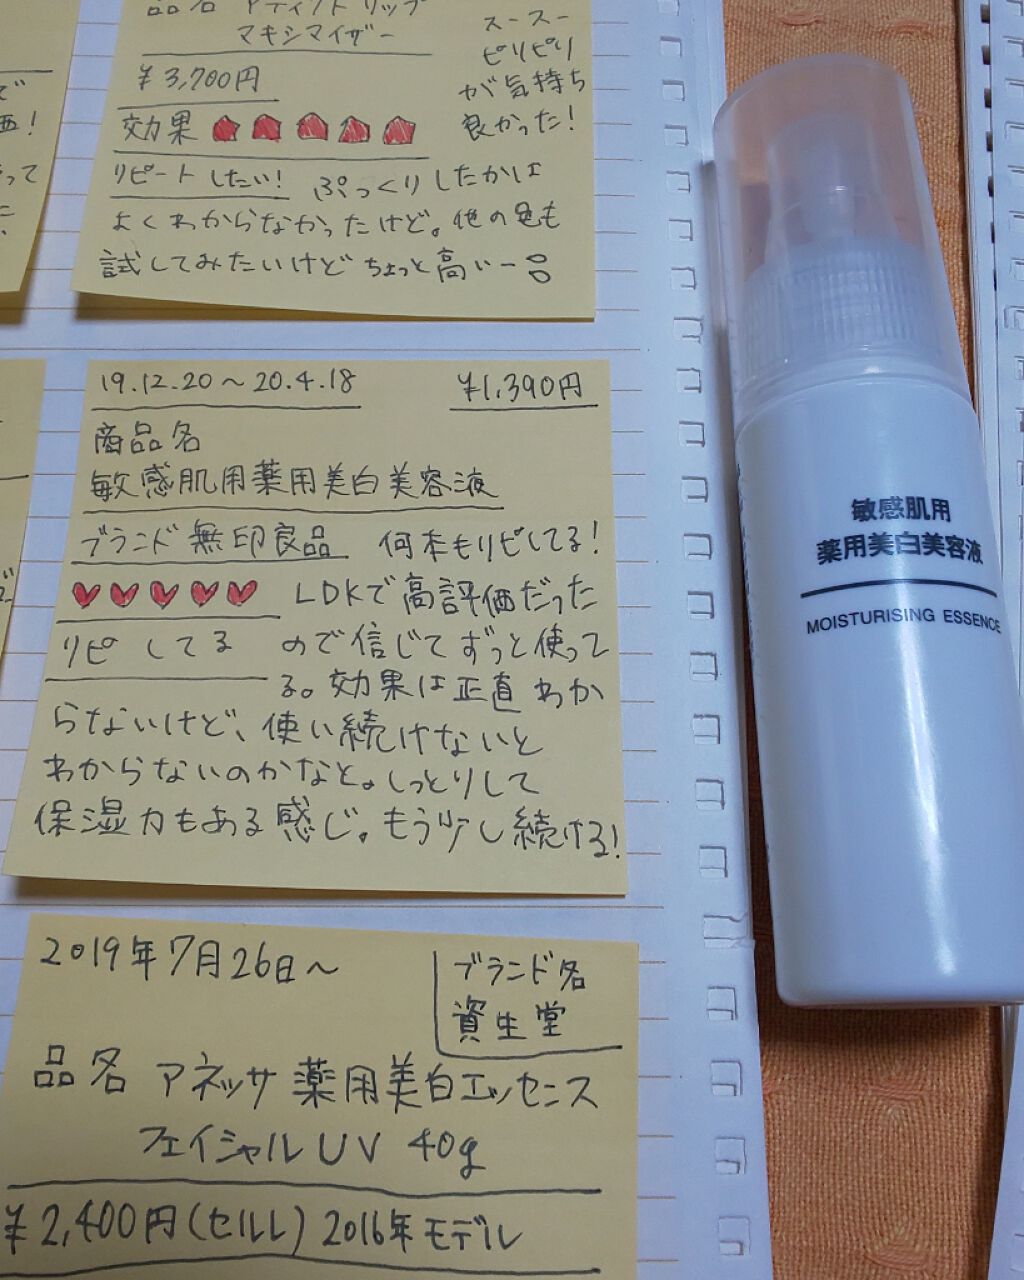 品名 アディクトリップ
マキシマイザー
スースー
ピリピリ
が気持ち
良かった!
¥3,700円
効果
リピートしたい! ぷっくりしたかは
よくわからなかったけど。他の色も
試してみたいけどちょっと高いー
19.12.20～20.4.18
¥1,390円
商品名
敏感肌用薬用美白美容液
ブランド 無印良品
何本もリピしてる!
LDKで高評価だった
リピしてる
ので信じてずっと使って
る。効果は正直わか
らないけど、使い続けないと
わからないのかなと。しっとりして
保湿力もある感じ。もう少し続ける!
2019年7月26日～
ブランド名
資生堂
品名 アネッサ 薬用美白エッセンス
フェイシャルUV 40g
¥2,400円(セルレ) 2016年モデル
敏感肌用
薬用美白美容液
MOISTURISING ESSENCE